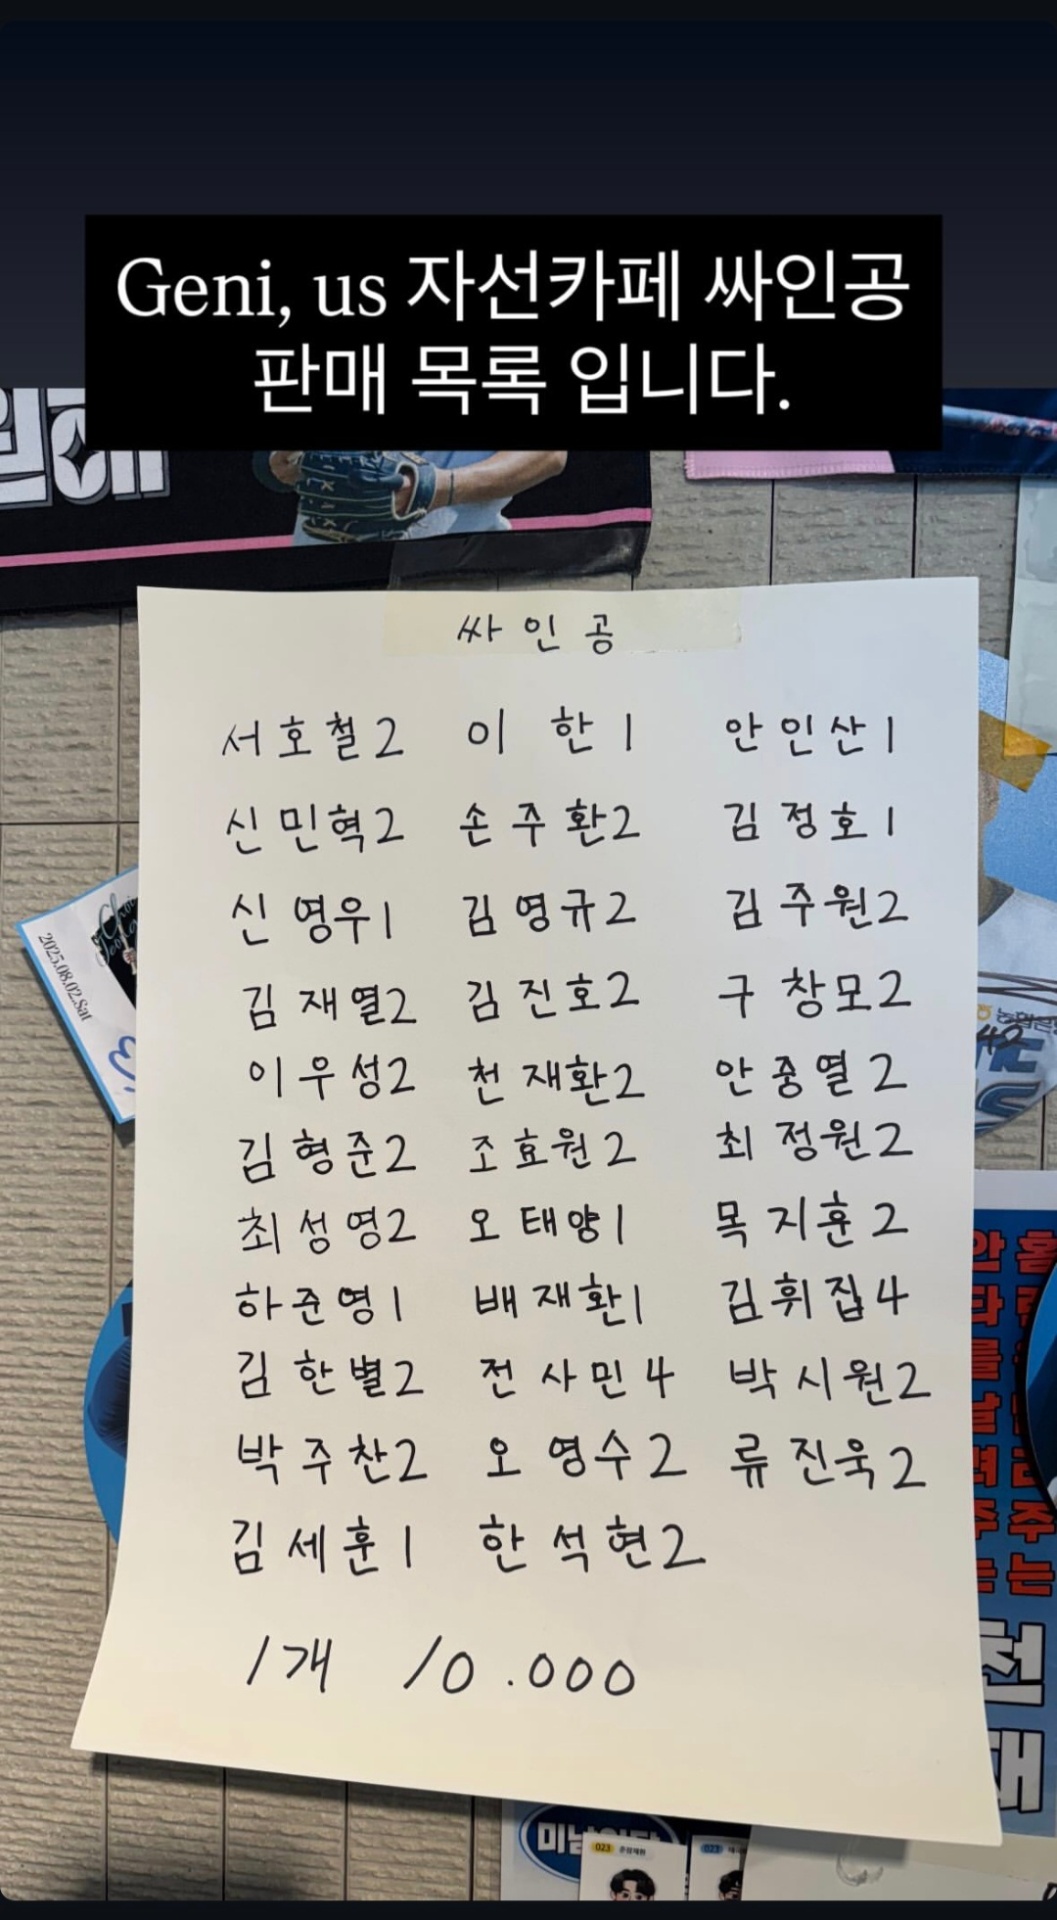 Geni, us 자선카페 싸인공
판매 목록 입니다.
싸인공
서호철2 이 한1 안인산1
신민혁2 손주환2 김정호1
신영우1 김영규2 김주원2
김재열2 김진호2 구창모2
이우성2 천재환2 안중열2
김형준2 조효원2 최정원2
최성영2 오태양1 목지훈2
하준영1 배재환1 김휘집4
김한별2 전사민4 박시원2
박주찬2 오영수2 류진욱2
김세훈1 한석현2
1개 10.000
2025.08.02.Sat
42
안타를날려주는
천재
023
023